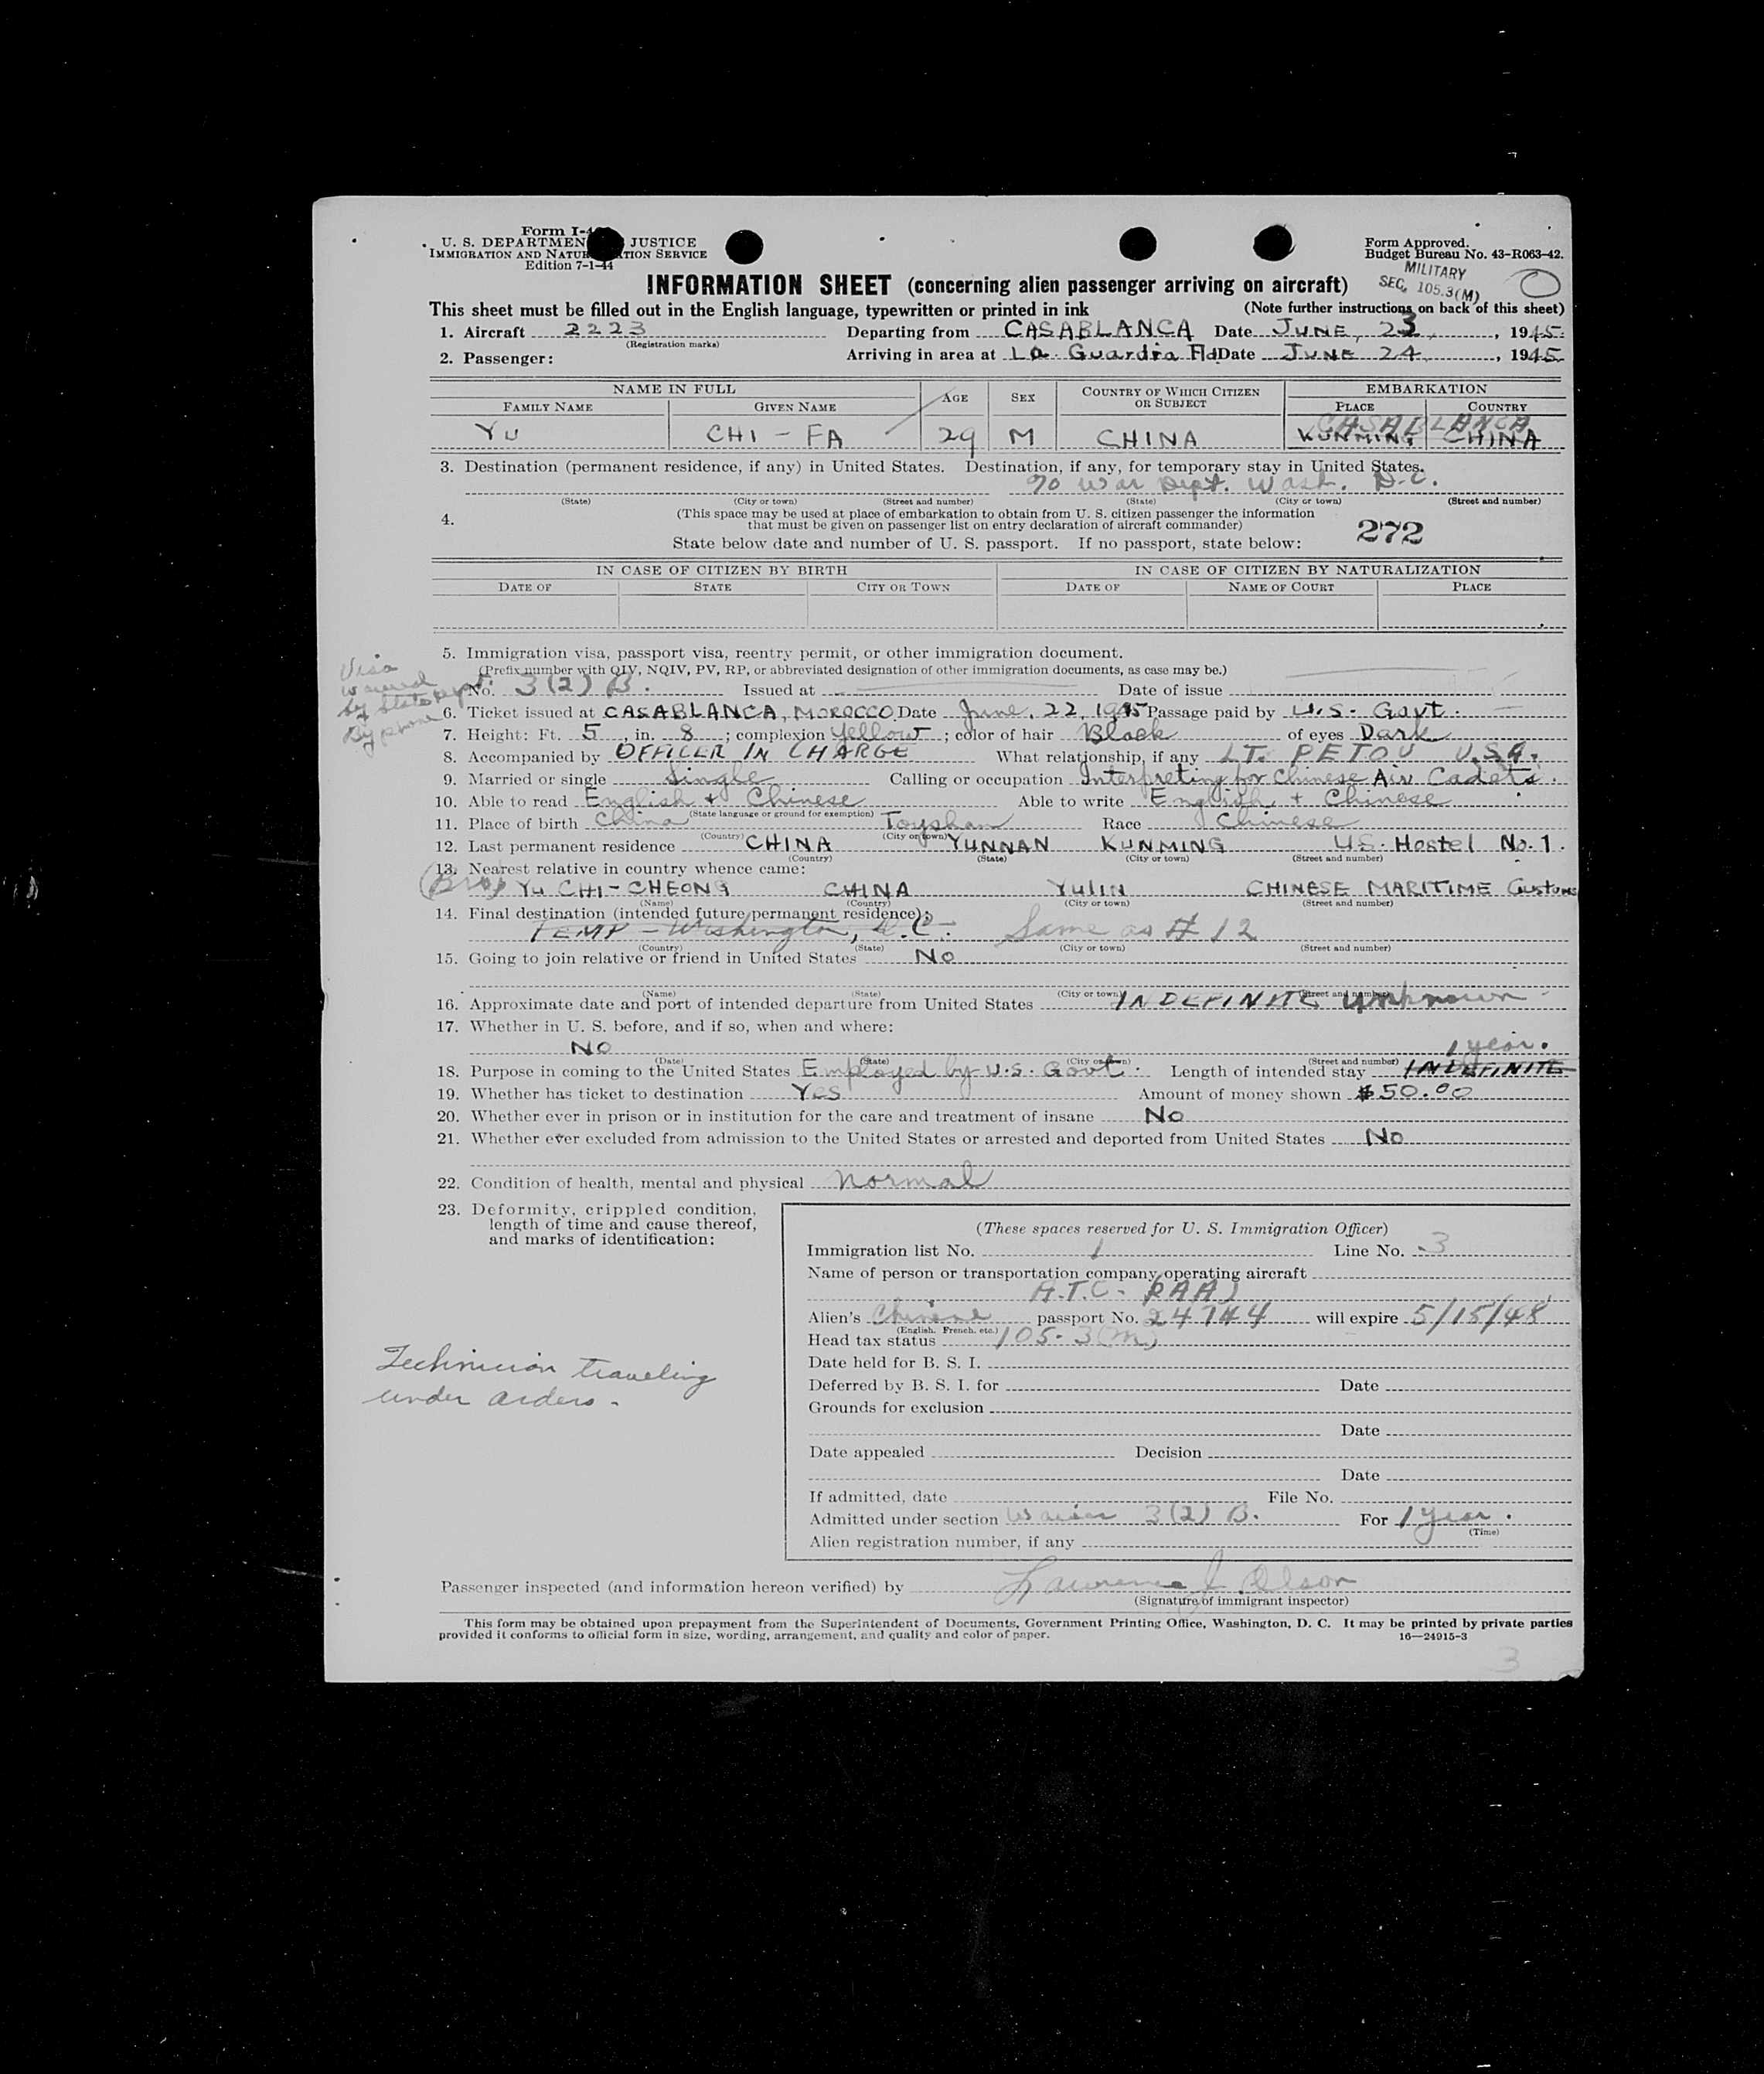 Form I-4
U. S. DEPARTMEN JUSTICE
IMMIGRATION AND NATUR TION SERVICE
Edition 7-1-44
Form Approved.
Budget Bureau No. 43-R063-42.
MILITARY
SEC. 105.3(M)
INFORMATION SHEET (concerning alien passenger arriving on aircraft)
This sheet must be filled out in the English language, typewritten or printed in ink (Note further instructions on back of this sheet)
1. Aircraft 2223 Departing from CASABLANCA Date JUNE, 23, 1945
(Registration marks)
2. Passenger: Arriving in area at La Guardia Fld Date JUNE 24, 1945
NAME IN FULL AGE SEX COUNTRY OF WHICH CITIZEN OR SUBJECT EMBARKATION
FAMILY NAME GIVEN NAME PLACE COUNTRY
CASABLANCA
YU CHI-FA 29 M CHINA KUNMING CHINA
3. Destination (permanent residence, if any) in United States. Destination, if any, for temporary stay in United States.
% War Dept. Wash. D.C.
(State) (City or town) (Street and number) (State) (City or town) (Street and number)
4. (This space may be used at place of embarkation to obtain from U. S. citizen passenger the information
that must be given on passenger list on entry declaration of aircraft commander)
272
State below date and number of U. S. passport. If no passport, state below:
IN CASE OF CITIZEN BY BIRTH IN CASE OF CITIZEN BY NATURALIZATION
DATE OF STATE CITY OR TOWN DATE OF NAME OF COURT PLACE
5. Immigration visa, passport visa, reentry permit, or other immigration document.
(Prefix number with QIV, NQIV, PV, RP, or abbreviated designation of other immigration documents, as case may be.)
Visa
waived
by State Dept.
By phone
No. 3(2) B. Issued at Date of issue
6. Ticket issued at CASABLANCA, MOROCCO Date June, 22, 1945 Passage paid by U.S. Govt.
7. Height: Ft. 5, in. 8; complexion Yellow; color of hair Black of eyes Dark
8. Accompanied by OFFICER IN CHARGE What relationship, if any LT. PETOU U.S.A.
9. Married or single Single Calling or occupation Interpreting for Chinese Air Cadets.
10. Able to read English + Chinese Able to write English + Chinese
(State language or ground for exemption)
11. Place of birth China Toyshan Race Chinese
(Country) (City or town)
12. Last permanent residence CHINA YUNNAN KUNMING US. Hostel No. 1.
(Country) (State) (City or town) (Street and number)
13. Nearest relative in country whence came:
(Bro) YU CHI-CHEONG CHINA YULIN CHINESE MARITIME Customs
(Name) (Country) (City or town) (Street and number)
14. Final destination (intended future permanent residence):
TEMP - Washington, D.C. Same as # 12
(Country) (State) (City or town) (Street and number)
15. Going to join relative or friend in United States No
(Name) (State) (City or town) (Street and number)
16. Approximate date and port of intended departure from United States INDEFINITE unknown
17. Whether in U. S. before, and if so, when and where:
NO 1 year.
(Date) (State) (City or town) (Street and number)
18. Purpose in coming to the United States Employed by U.S. Govt. Length of intended stay INDEFINITE
19. Whether has ticket to destination Yes Amount of money shown $50.00
20. Whether ever in prison or in institution for the care and treatment of insane No
21. Whether ever excluded from admission to the United States or arrested and deported from United States No
22. Condition of health, mental and physical normal
23. Deformity, crippled condition,
length of time and cause thereof,
and marks of identification:
Technician traveling
under orders.
(These spaces reserved for U. S. Immigration Officer)
Immigration list No. 1 Line No. 3
Name of person or transportation company operating aircraft
A.T.C. PAA)
Alien's Chinese passport No. 24744 will expire 5/15/48
(English, French, etc.)
Head tax status 105.3(m)
Date held for B. S. I.
Deferred by B. S. I. for Date
Grounds for exclusion
Date
Date appealed Decision
Date
If admitted, date File No.
Admitted under section Waiver 3(2) B. For 1 year.
(Time)
Alien registration number, if any
Passenger inspected (and information hereon verified) by Lawrence J. Olson
(Signature of immigrant inspector)
This form may be obtained upon prepayment from the Superintendent of Documents, Government Printing Office, Washington, D. C. It may be printed by private parties
provided it conforms to official form in size, wording, arrangement, and quality and color of paper. 16—24915-3
3